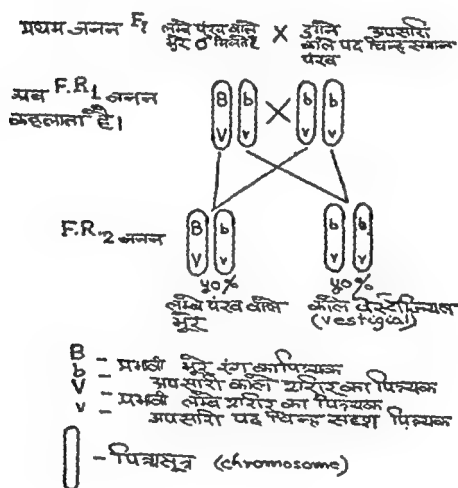 प्रथम जनन F1 लम्बे पंख वाले × डाने अपसारी
भूरे ♂ काले पद चिन्ह समान
पंख
अब F.R1 जनन
कहलाता है।
B b × b b
V v v v
F.R.2 जनन
B b b b
V v v v
५०% ५०%
लम्बे पंख वाले काले वेस्टीजियल
भूरे (vestigial)
B – प्रभावी भूरे रंग का पित्र्यक
b – अपसारी काले शरीर का पित्र्यक
V – प्रभवी लम्बे शरीर का पित्र्यक
v – अपसारी पद चिन्ह सदृश पित्र्यक
– पित्र्यसूत्र (chromosome)